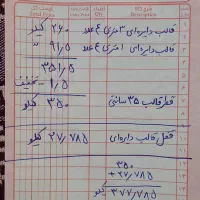 شرح کالا
Description
قالب دایره‌ای ۳ متری ۴ عدد ۲۶۰ کیلو
قالب دایره‌ای ۱ متری ۴ عدد ۹۱/۵ "
۳۵۱/۵
۱/۵ - تخفیف
قطر قالب ۳۵ سانتی ۳۵۰ کیلو
قفل قالب دایره‌ای ۲۷/۷۸۵ کیلو
۳۵۰
+۲۷/۷۸۵
۳۷۷/۷۸۵ کیلو